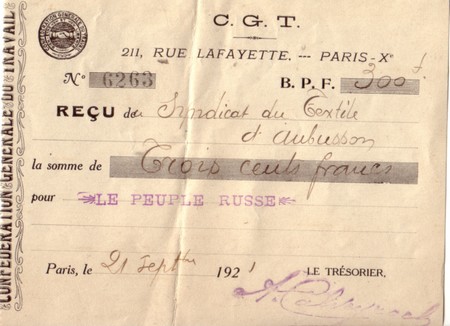 CONFÉDÉRATION GÉNÉRALE DU TRAVAIL
C. G. T.
211, RUE LAFAYETTE. — PARIS-Xe
No 6263 B. P. F. 300 f
REÇU de Syndicat du Textile
d'Aubusson
la somme de Trois cents francs
pour LE PEUPLE RUSSE
Paris, le 21 Septbre 1921
LE TRÉSORIER,